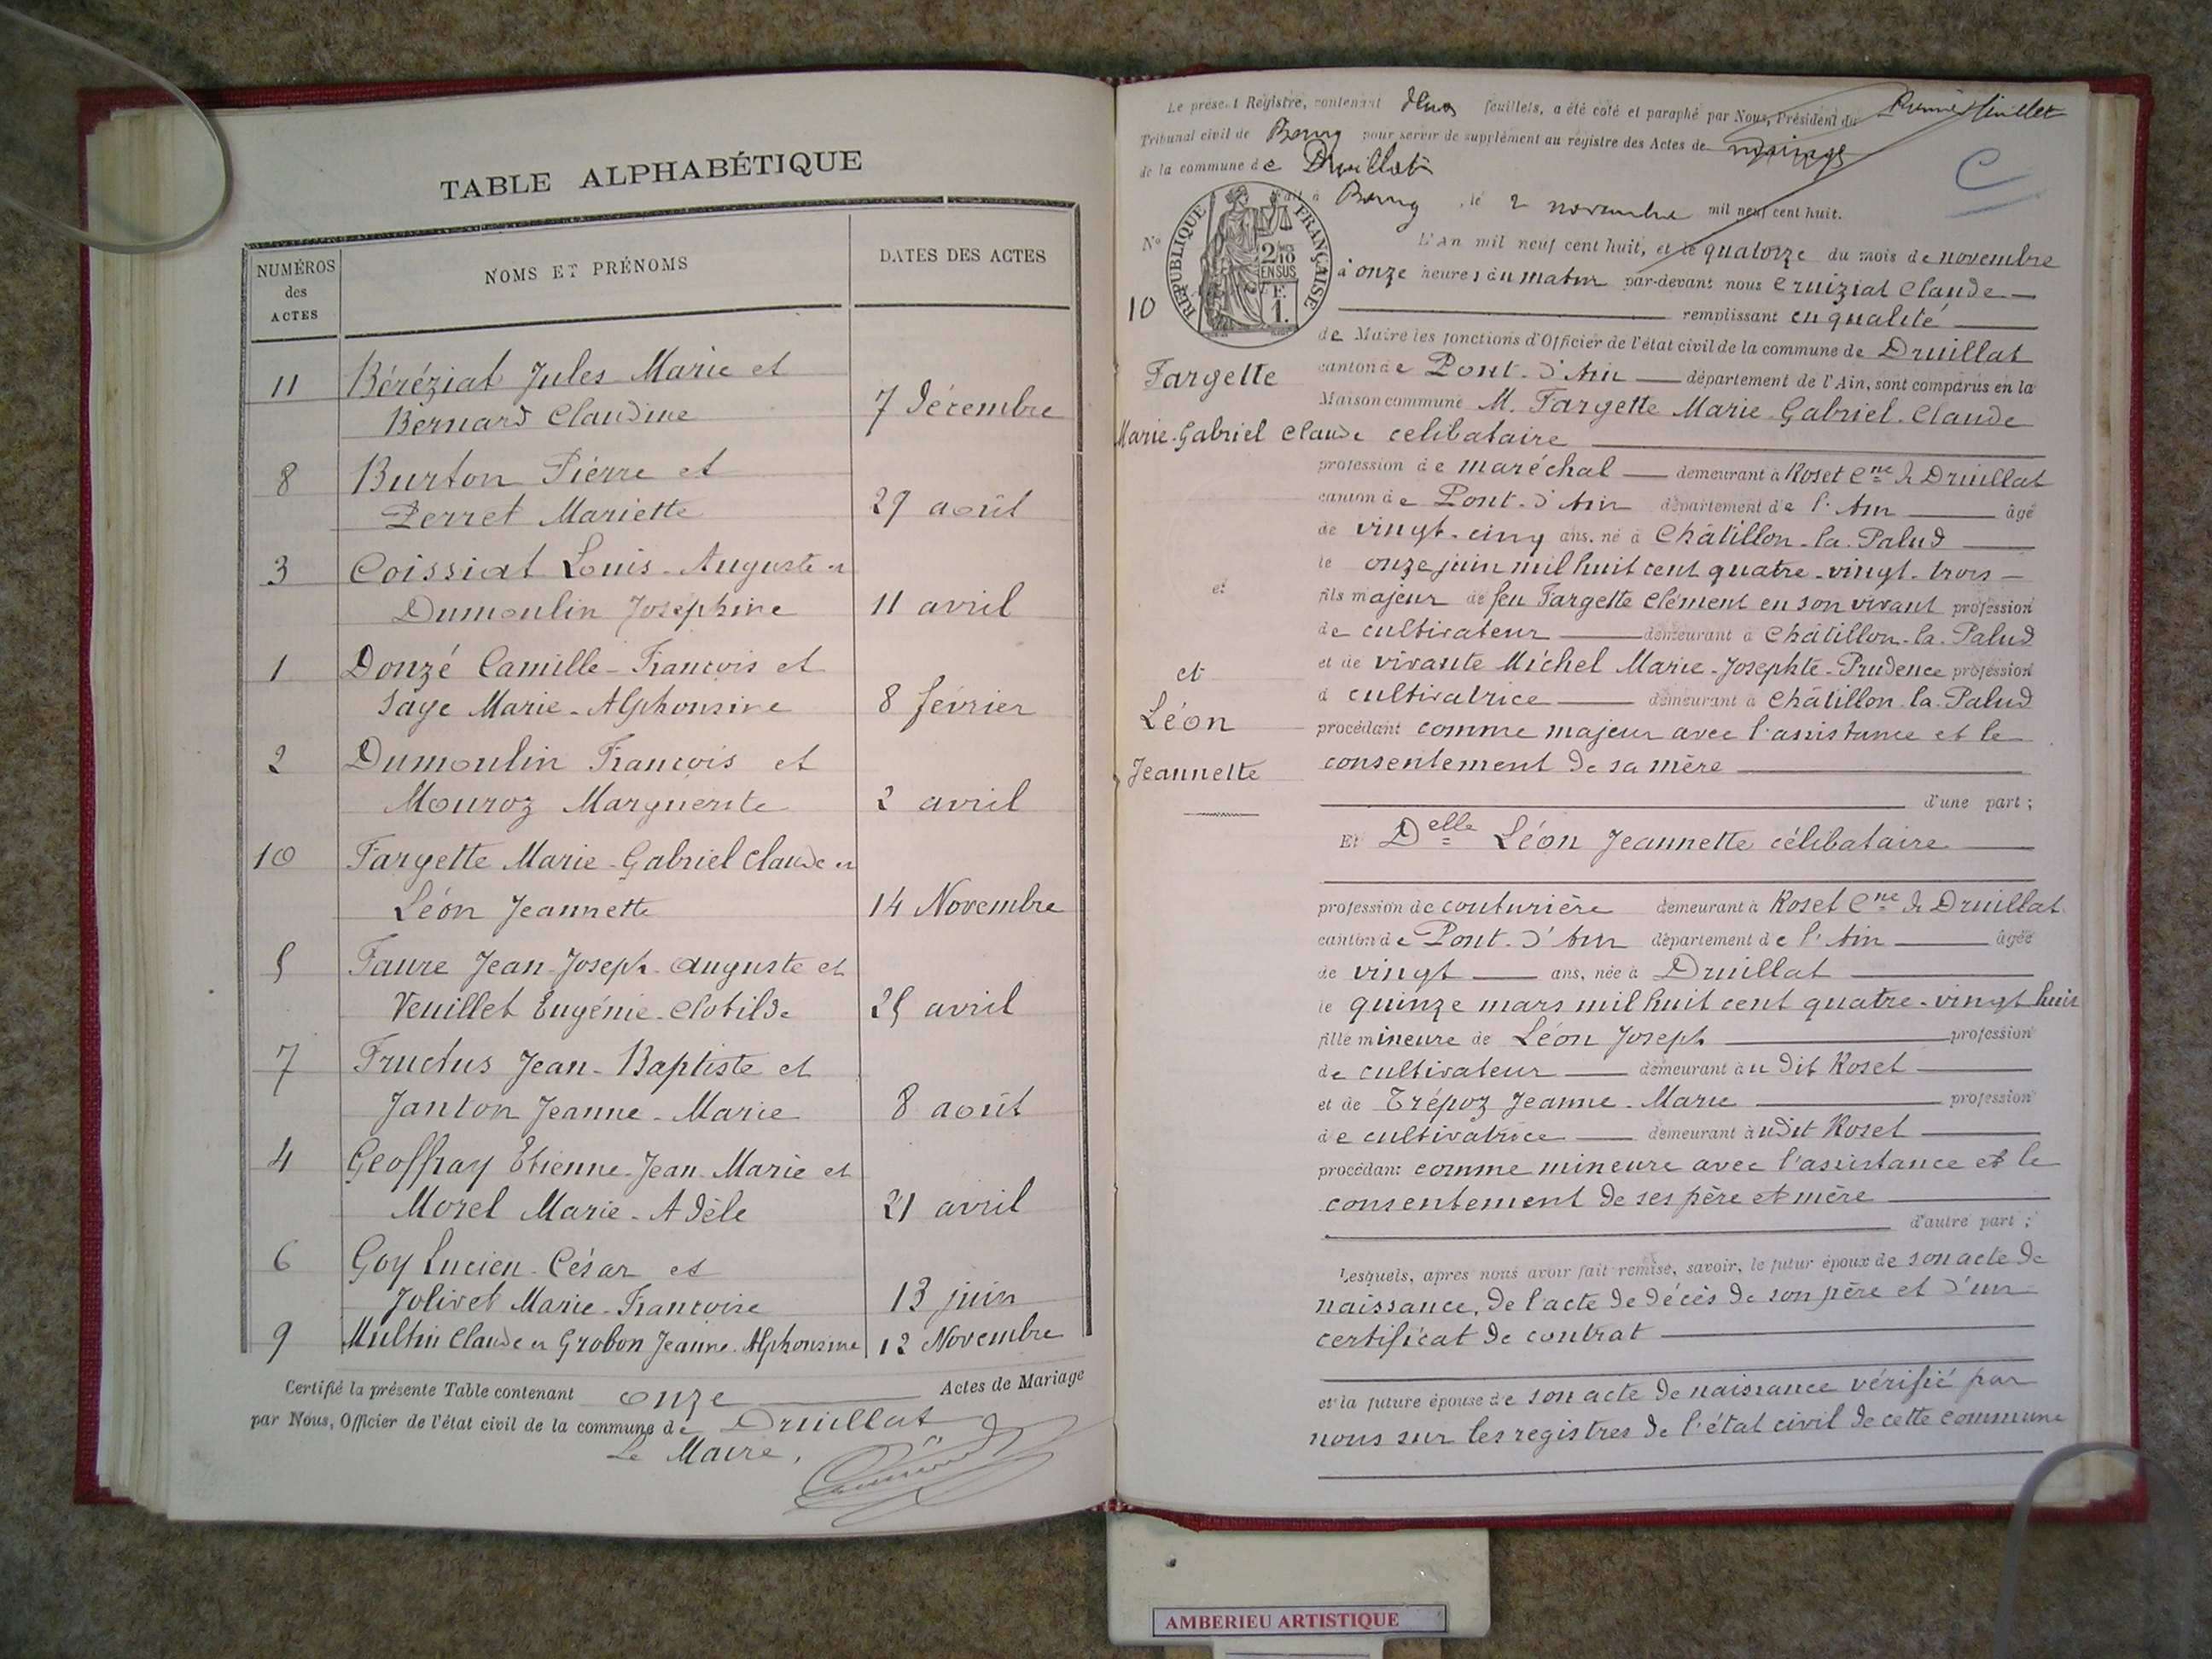 TABLE ALPHABÉTIQUE
NUMÉROS
des
ACTES
NOMS ET PRÉNOMS
DATES DES ACTES
11 Béréziat Jules Marie et
Bernard Claudine 7 décembre
8 Burton Pierre et
Perret Mariette 29 août
3 Coissiat Louis-Auguste et
Dumoulin Joséphine 11 avril
1 Donzé Camille-François et
Sage Marie-Alphonsine 8 février
2 Dumoulin François et
Mouroz Marguerite 2 avril
10 Fargette Marie-Gabriel Claude et
Léon Jeannette 14 Novembre
5 Faure Jean-Joseph-Auguste et
Veuillet Eugénie-Clotilde 25 avril
7 Fructus Jean-Baptiste et
Janton Jeanne-Marie 8 août
4 Geoffray Etienne-Jean-Marie et
Morel Marie-Adèle 21 avril
6 Goy Lucien-César et
Jolivet Marie-Françoise 13 juin
9 Multin Claude et Grobon Jeanne-Alphonsine 12 Novembre
Certifié la présente Table contenant onze Actes de Mariage
par Nous, Officier de l'état civil de la commune de Druillat
Le Maire,
Le présent Registre, contenant deux feuillets, a été coté et paraphé par Nous, Président du
Premier feuillet
Tribunal civil de Bourg pour servir de supplément au registre des Actes de mariage
de la commune de Druillat
C
Fait à Bourg, le 2 novembre mil neuf cent huit.
RÉPUBLIQUE FRANÇAISE
2/10
EN SUS
F.
1.
N°
10
L'an mil neuf cent huit, et le quatorze du mois de novembre
à onze heures du matin par-devant nous Cruiziat Claude
remplissant en qualité
de Maire les fonctions d'Officier de l'état civil de la commune de Druillat
Fargette
canton de Pont-d'Ain département de l'Ain, sont comparus en la
Maison commune M. Fargette Marie-Gabriel-Claude
Marie-Gabriel Claude
celibataire
profession de maréchal demeurant à Roset Cne de Druillat
canton de Pont-d'Ain département de l'Ain âgé
de vingt-cinq ans, né à Châtillon-la-Palud
le onze juin mil huit cent quatre-vingt-trois
et
fils majeur de feu Fargette Clément en son vivant profession
de cultivateur demeurant à Châtillon-la-Palud
et
et de vivante Michel Marie-Josephte-Prudence profession
d cultivatrice demeurant à Châtillon-la-Palud
Léon
procédant comme majeur avec l'assistance et le
Jeannette
consentement de sa mère
d'une part ;
Et Delle Léon Jeannette célibataire
profession de couturière demeurant à Roset Cne de Druillat
canton de Pont-d'Ain département de l'Ain âgée
de vingt ans, née à Druillat
le quinze mars mil huit cent quatre-vingt huit
fille mineure de Léon Joseph profession
de cultivateur demeurant au dit Roset
et de Trépoz Jeanne-Marie profession
de cultivatrice demeurant audit Roset
procédant comme mineure avec l'assistance et le
consentement de ses père et mère
d'autre part ;
Lesquels, après nous avoir fait remise, savoir, le futur époux de son acte de
naissance, de l'acte de décès de son père et d'un
certificat de contrat
et la future épouse de son acte de naissance vérifié par
nous sur les registres de l'état civil de cette commune
AMBERIEU ARTISTIQUE